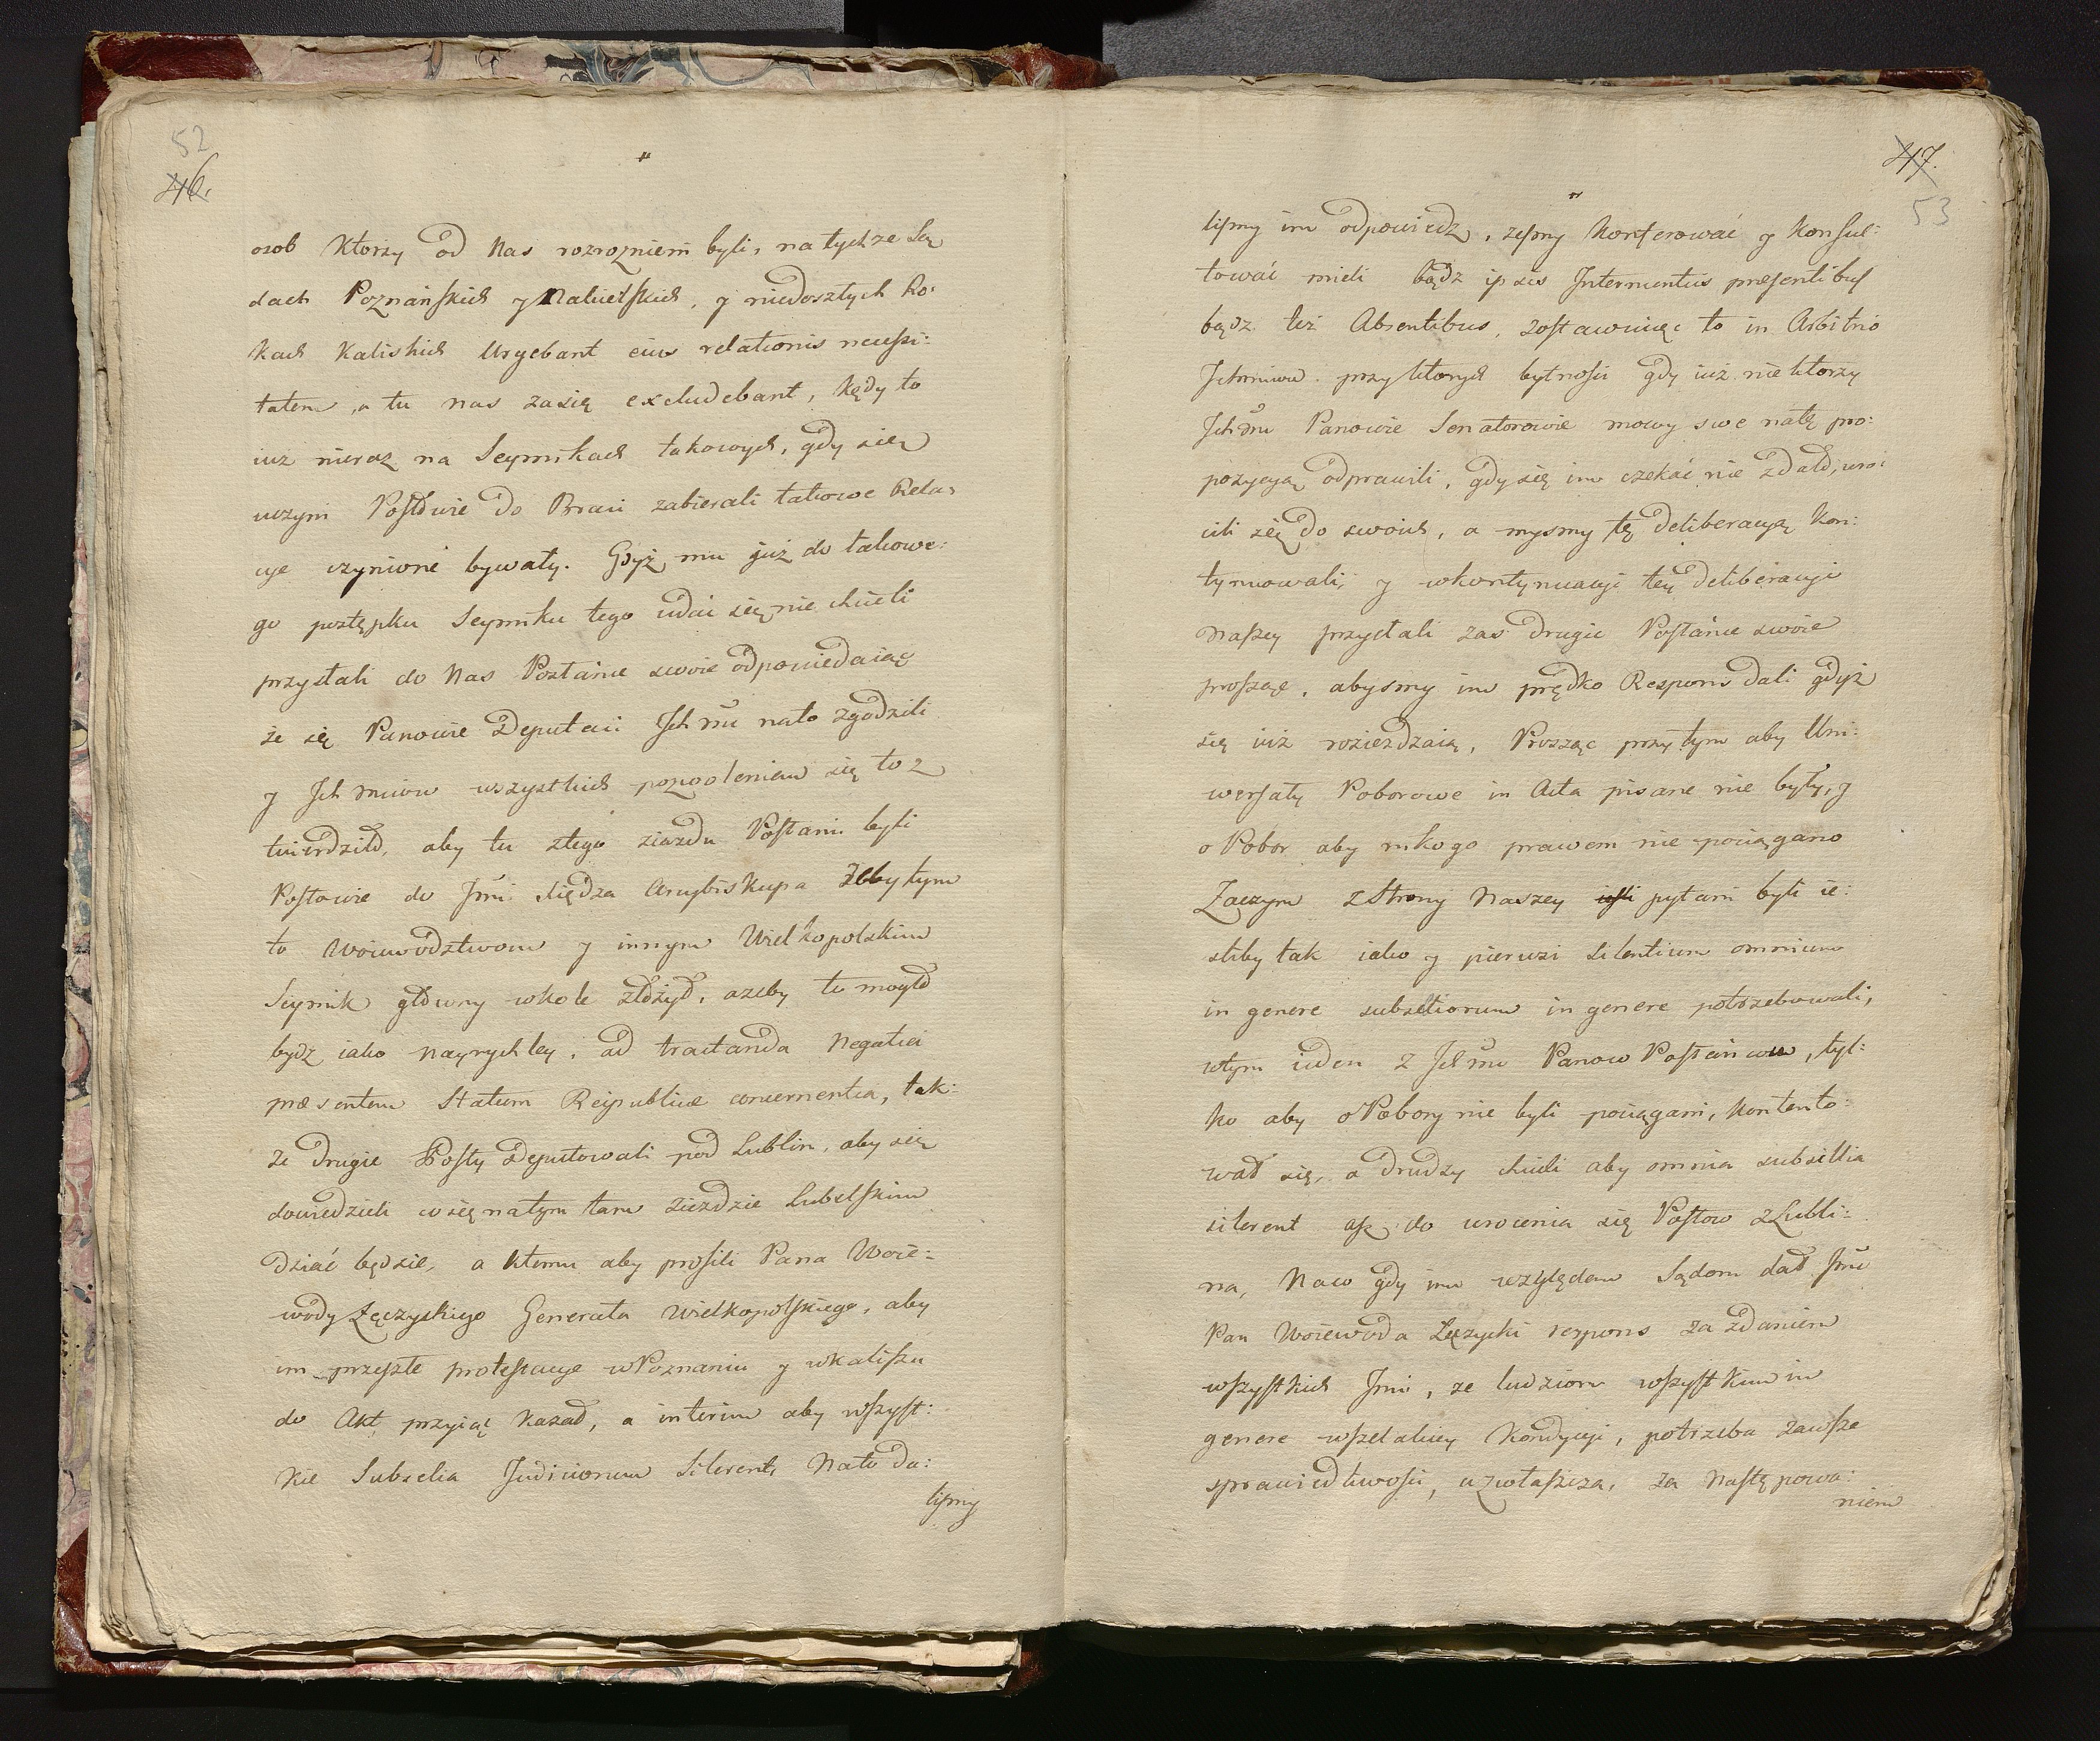 52
46.
osob Ktorzy od Nas rozroznieni byli, na tychze Są
dach Poznańskich y Nakielskich, y niedoszłych Ro:
kach Kaliskich Urgebant eius relationis necessi:
tatem, a tu nas zasię excludebant, kędy to
iuz nieraz na Seymikach takowych, gdy się
uczyni Posłowie do Braci zabierali takowe Rela,
cye czynione bywały. Gdyż mu już do takowe:
go postępku Seymiku tego udać się nie chcieli
przysłali do Nas Posłańce swoie odpowiedaiąc
że się Panowie Deputaci Ich mci nato zgodzili
y Ich mciow wszystkich pozwoleniem się to z
twierdziło, aby tu ztego ziazdu Posłani byli
Posłowie do Jmci Xiędza Arcybiskupa Zeby tym
to Woiewodztwom y innym Wielkopolskim
Seymik głowny wKole złożył, azeby to mogło
bydz iako nayrychley, ad tractanda Negotia
præsentem Statum Reipublicæ concernentia, tak:
ze drugie Posły Deputowali pod Lublin, aby się
dowiedzieli co się natym tam Ziezdzie Lubelskim
dziać będzie, a ktemu aby prosili Pana Woie:
wody Łęczyckiego Generała Wielkopolskiego, aby
im przeszłe protestacye wPoznaniu y wKaliszu
do Akt przyiąć kazał, a interim aby wszyst:
kie Subselia Judiciorum Silerent, Nato da:
lismy
47.
53
lismy im odpowiedz, zesmy Konferować y Konsul:
tować mieli bądz ipsis Internuntiis præsentibus
bądz też Absentibus, zostawuiąc to in Arbitrio
Ichmciow. przy ktorych bytnosci gdy iuż niektorzy
Ich mci Panowie Senatorowie mowy swe natę pro:
pozycyą odprawili, gdy się im czekać nie zdało, wro:
cili się do swoich, a mysmy tę deliberacyą Kon:
tynuowali, y wkontynuacyi tey deliberacyi
Naszey przysłali zas drugie Posłańce swoie
prosząc, abysmy im prędko Respons dali gdyż
się iuż roziezdzaią, Prosząc przy tym aby Uni:
wersały Poborowe in Acta pisane nie były, y
o Pobor aby nikogo prawem nie pociągano
Zaczym z Strony Naszey pytani byli ie:
sliby tak iako y pierwsi Silentium omnium
in genere subselliorum in genere potrzebowali,
wtym ieden z Ich mci Panow Posłańcow, tyl:
ko aby o Pobory nie byli pociągani, kontento:
wał się, a drudzy chcieli aby omnia subsellia
silerent asz do wrocenia się Posłow z Lubli:
na, Naco gdy im względem Sądom dał Jmci
Pan Woiewoda Łęczycki respons za zdaniem
wszystkich Jmci, ze ludziom wszystkim in
genere wszelakiey Kondycyi, potrzeba zawsze
sprawiedliwosci, a zwłaszcza, za Następowa:
niem